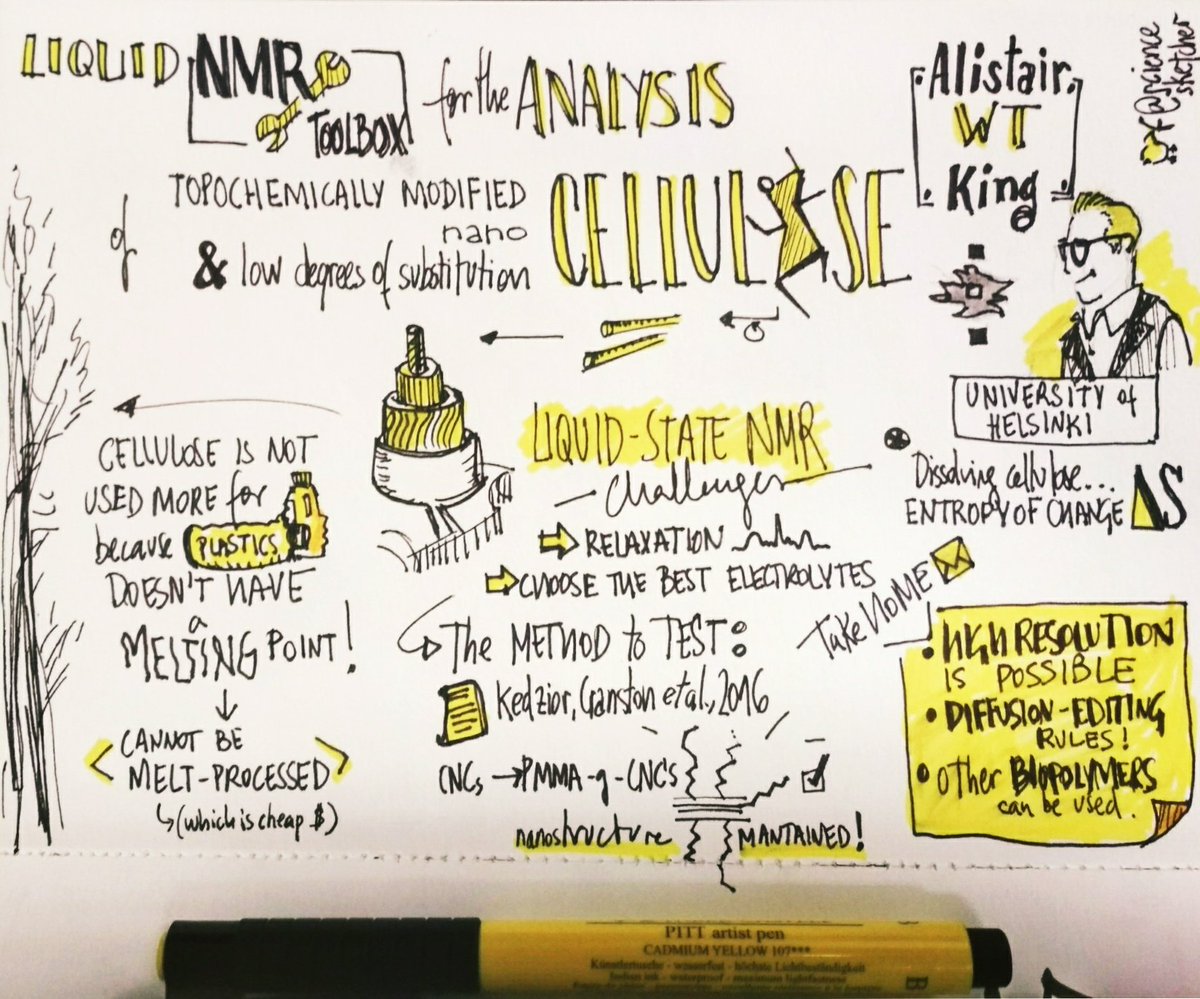 LIQUID NMR TOOLBOX for the ANALYSIS
of TOPOCHEMICALLY MODIFIED
nano CELLULOSE
& low degrees of substitution
Alistair
WT
King
@science
sketcher
UNIVERSITY of
HELSINKI
Dissolving cellulose...
ENTROPY OF CHANGE ΔS
CELLULOSE IS NOT
USED MORE for
because PLASTICS
DOESN'T HAVE
a
MELTING POINT!
CANNOT BE
MELT-PROCESSED
(which is cheap $)
LIQUID-STATE NMR
challenges
RELAXATION
CHOOSE THE BEST ELECTROLYTES
The METHOD to TEST:
Kedzior, Cranston et al., 2016
CNCs → PMMA-g-CNCs
nanostructure MANTAINED!
Take HOME!
• HIGH RESOLUTION
IS POSSIBLE
• DIFFUSION-EDITING
RULES!
• other BIOPOLYMERS
can be used.
PITT artist pen
CADMIUM YELLOW 107***
Künstlertusche - wasserfest - höchste Lichtbeständigkeit
Indian ink - waterproof - maximum lightfastness
B